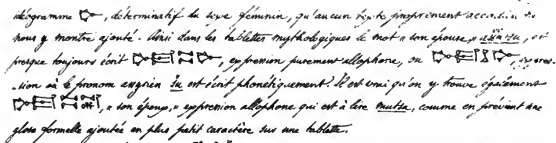 idéogramme, déterminatif du sexe féminin, qu'aucun texte proprement accadien ne
nous y montre ajouté. Ainsi dans les tablettes mythologiques le mot « son épouse, » est
presque toujours écrit, expression purement allophone, ou, expres-
-sion où le pronom assyrien šu est écrit phonétiquement. Il est vrai qu'on y trouve également
, « son époux, » expression allophone qui est à lire mutsu, comme en prévient une
glose formelle ajoutée en plus petit caractère sur une tablette.